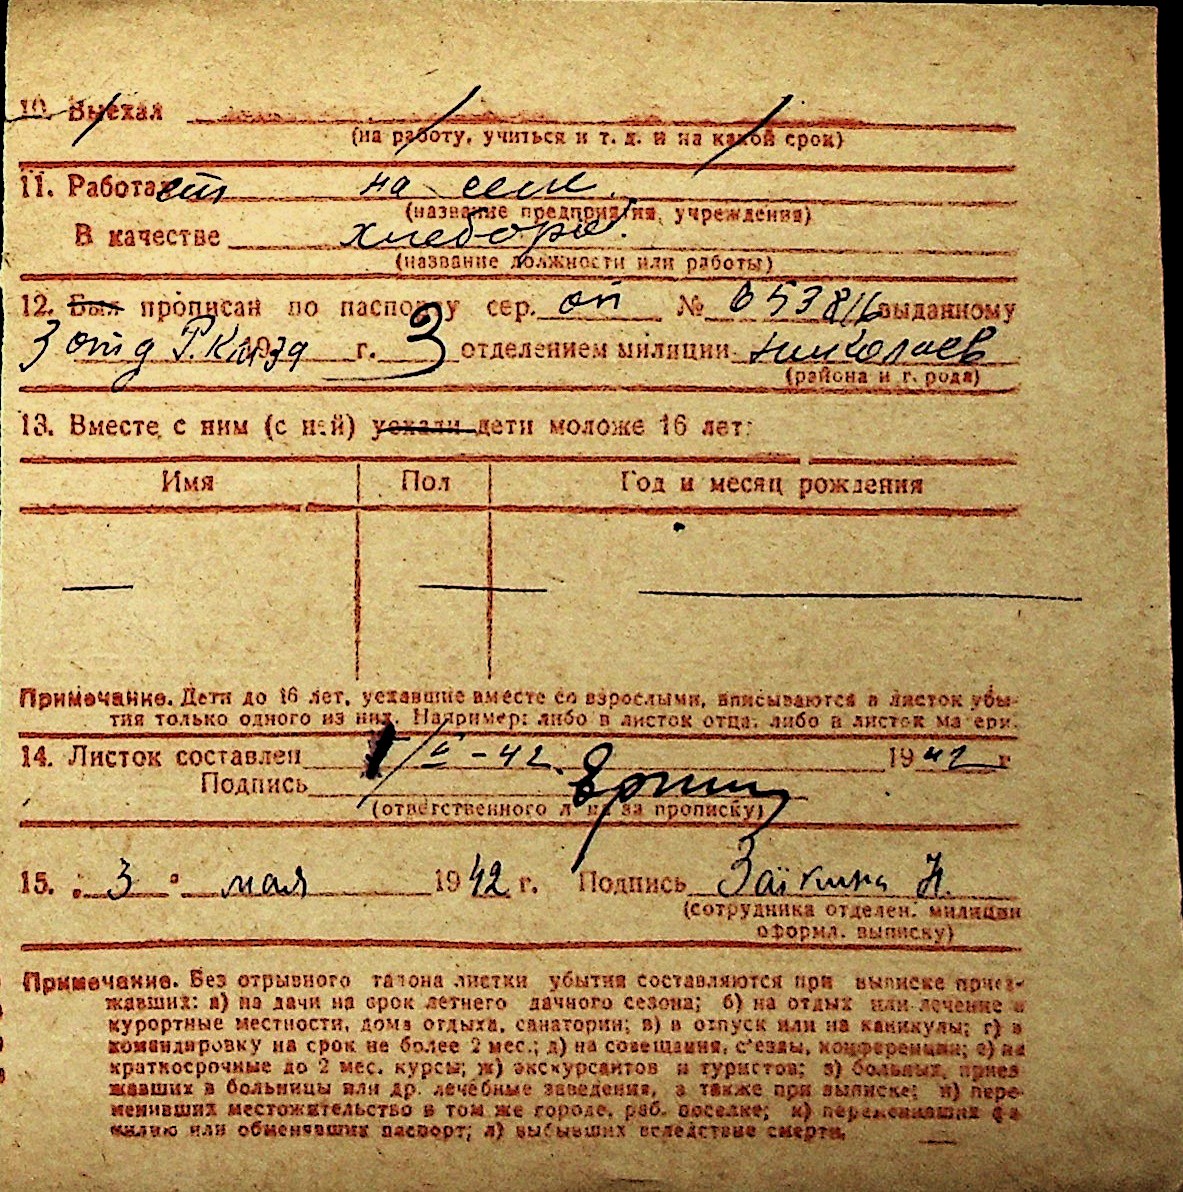 10. Выехал
(на работу, учиться и т. д. и на какой срок)
11. Работает на селе.
(название предприятия, учреждения)
В качестве хлебороб.
(название должности или работы)
12. Был прописан по паспорту сер. оп № 653816 выданному
3 отд Р.К.М 1939 г. 3 отделением милиции Николаев
(района и г. рода)
13. Вместе с ним (с ней) уехали дети моложе 16 лет:
Имя Пол Год и месяц рождения
— — —
Примечание. Дети до 16 лет, уехавшие вместе со взрослыми, вписываются в листок убы-
тия только одного из них. Например: либо в листок отца, либо в листок матери.
14. Листок составлен 1/V-42. 1942 г
Подпись
(ответственного лица за прописку)
15. „3" мая 1942 г. Подпись Заікина Н.
(сотрудника отделен. милиции
оформл. выписку)
Примечание. Без отрывного талона листки убытия составляются при выписке приез-
жавших: а) на дачи на срок летнего дачного сезона; б) на отдых или лечение в
курортные местности, дома отдыха, санатории; в) в отпуск или на каникулы; г) в
командировку на срок не более 2 мес.; д) на совещания, съезды, конференции; е) на
краткосрочные до 2 мес. курсы; ж) экскурсантов и туристов; з) больных, приез
жавших в больницы или др. лечебные заведения, а также при выписке; и) пере-
менивших местожительство в том же городе, раб. поселке; к) переменивших фа
милию или обменявших паспорт; л) выбывших вследствие смерти.